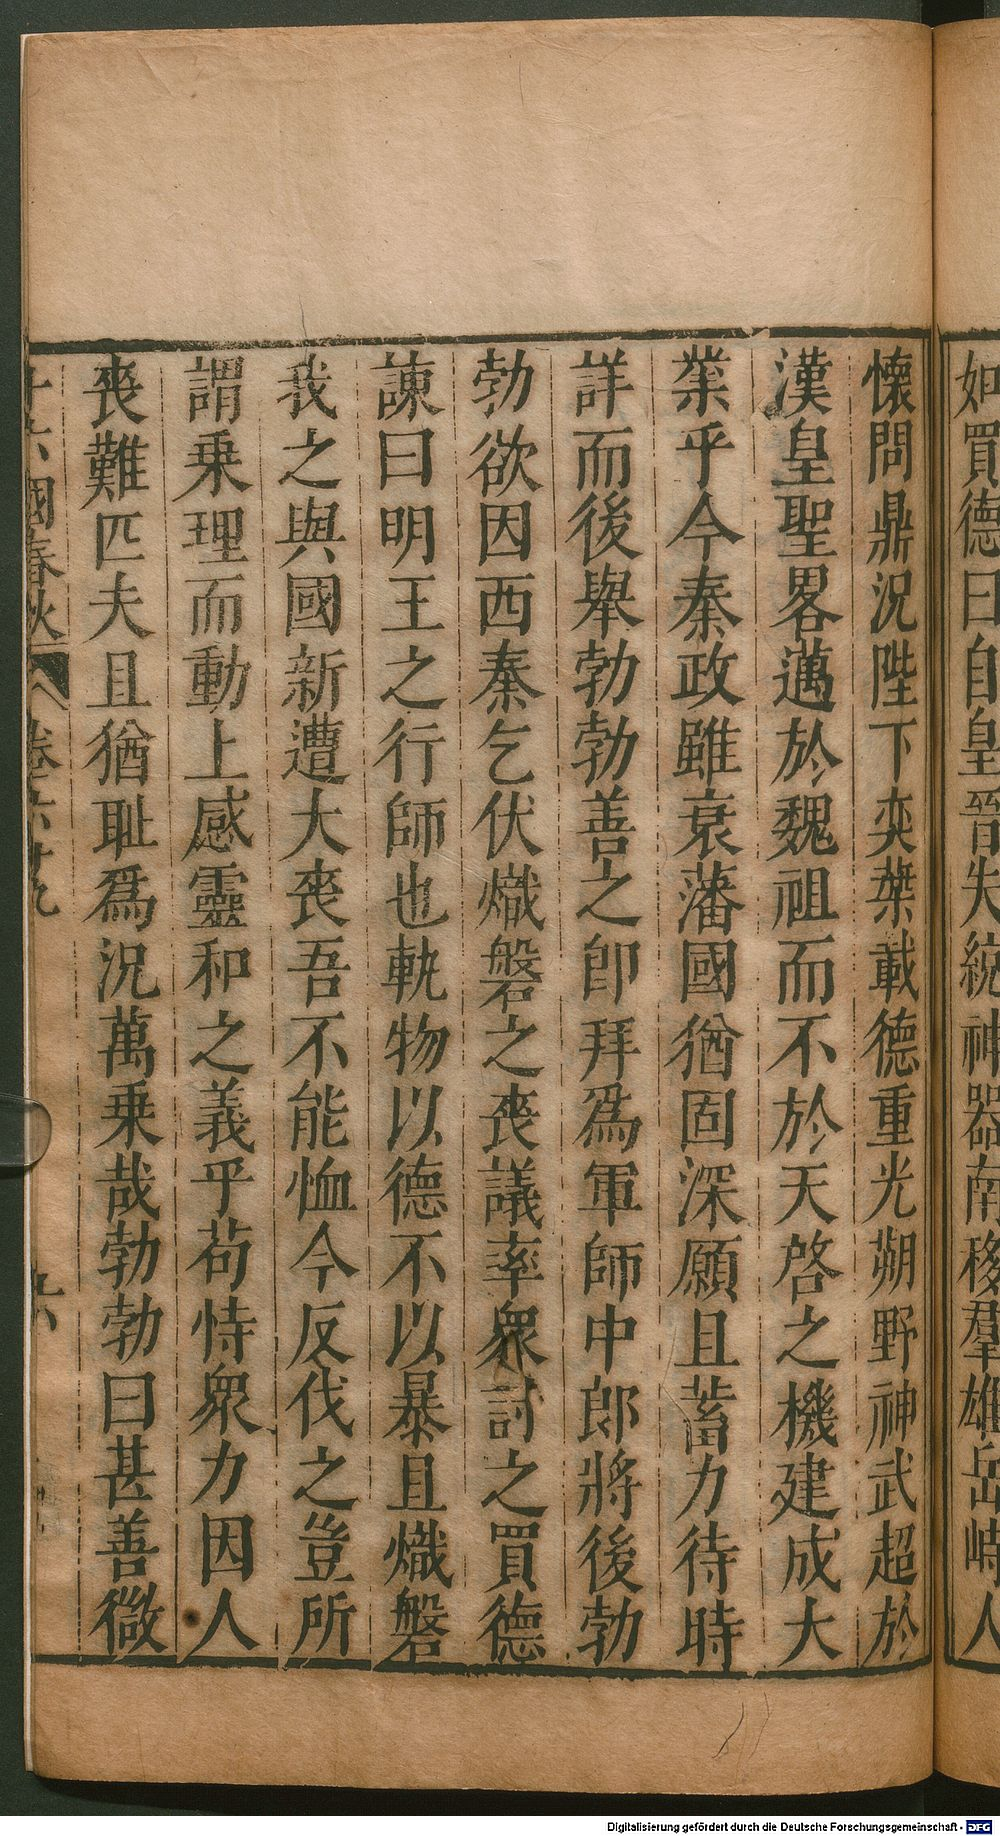 如買德曰自皇晉失統神器南移羣雄岳峙人
懷問鼎況陛下奕葉載德重光朔野神武超於
漢皇聖畧邁於魏祖而不於天啓之機建成大
業乎今秦政雖衰藩國猶固深願且蓄力待時
詳而後舉勃勃善之卽拜爲軍師中郎將後勃
勃欲因西秦乞伏熾磐之喪議率衆討之買德
諫曰明王之行師也軌物以德不以暴且熾磐
我之與國新遭大喪吾不能恤今反伐之豈所
謂乗理而動上感靈和之義乎苟恃衆力因人
喪難匹夫且猶耻爲況萬乗哉勃勃曰甚善微
十六國春秋 卷六十九 六
Digitalisierung gefördert durch die Deutsche Forschungsgemeinschaft - DFG